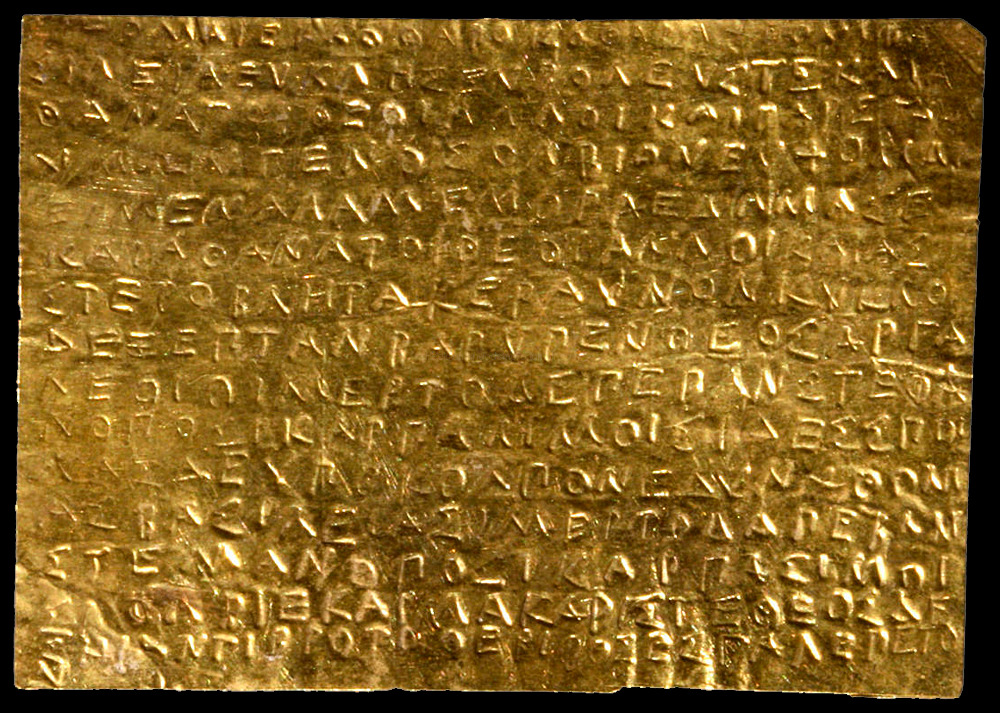 ΕΡΧΟΜΑΙΕΚΑΘΑΡΟΚΟΘΑΡΑΧΘΟΝΙΟΝΒΑ
ΣΙΛΕΙΑΕΥΚΛΗΣΕΥΒΟΛΕΥΣΤΕΚΑΙΑ
ΘΑΝΑΤΟΙΘΕΟΙΑΛΛΟΙΚΑΙΓΑΡΕΓΩΝ
ΥΜΩΝΓΕΝΟΣΟΛΒΙΟΝΕΥΧΟΜΑΙ
ΕΙΜΕΝΑΛΑΜΕΜΟΡΑΕΔΑΜΑΣΕ
ΚΑΙΑΘΑΝΑΤΟΙΘΕΟΙΑΛΛΟΙΚΑΙΑΣ
ΣΤΕΡΟΒΛΗΤΑΚΕΡΑΥΝΟΝΚΥΚΛΟ
ΔΕΞΕΠΤΑΝΒΑΡΥΠΕΝΘΕΟΣΑΡΓΑ
ΛΕΟΙΟΙΜΕΡΤΟΔΕΣΠΕΒΑΝΣΤΕΦΑ
ΝΟΠΟΣΙΚΑΡΠΑΛΙΜΟΙΣΙΔΕΣΣΠΟΙ
ΝΑΣΔΕΥΠΟΚΟΛΠΟΝΕΔΥΝΧΘΟΝΙ
ΑΣΒΑΣΙΛΕΙΑΣΙΜΕΡΤΟΔΑΠΕΒΑΝ
ΣΤΕΜΑΝΟΠΟΣΙΚΑΡΠΑΣΙΜΟΙ
ΣΙΟΛΒΙΕΚΑΙΜΑΚΑΡΙΣΤΕΘΕΟΣΔΕ
ΣΗΙΑΝΤΙΒΡΟΤΟΙΟΕΡΙΦΟΣΕΣΓΑΛΕΠΕΤΟ
Ν